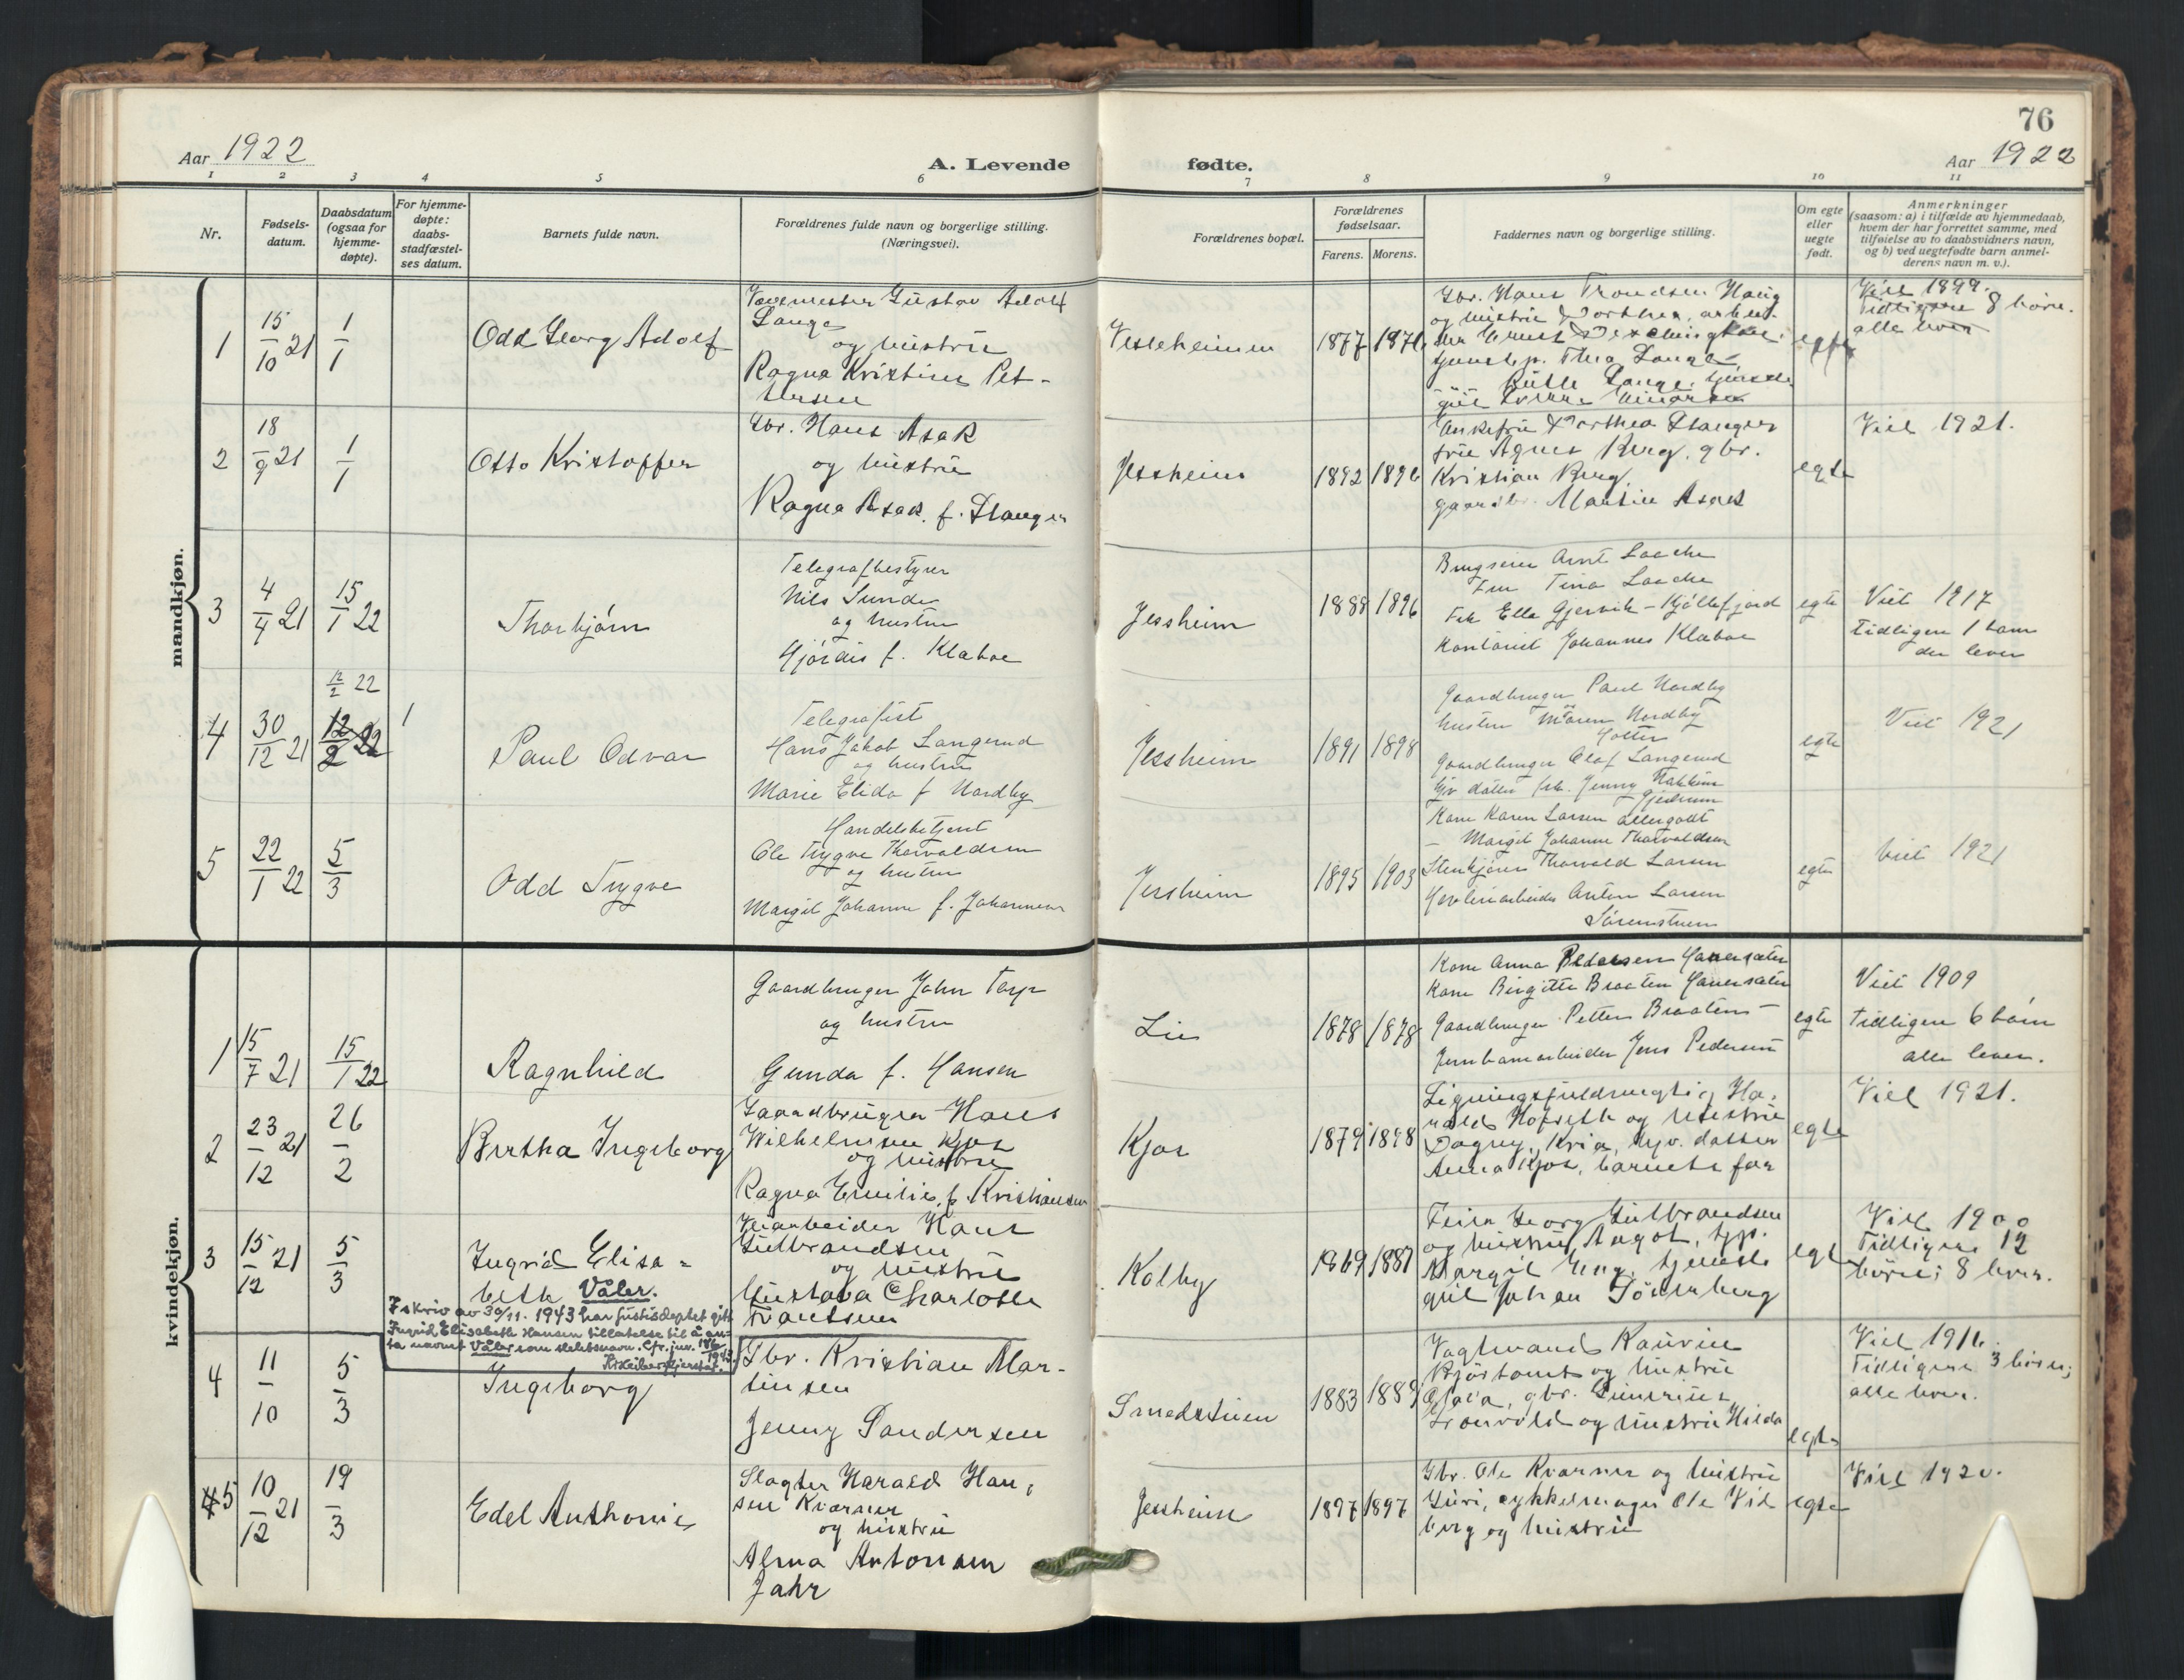 76
Aar 1922
A. Levende fødte.
Aar 1922
1 2 3 4 5 6 7 8 9 10 11
Nr.
Fødsels-
datum.
Daabsdatum
(ogsaa for
hjemme-
døpte).
For hjemme-
døpte:
daabs-
stadfæstel-
ses datum.
Barnets fulde navn.
Forældrenes fulde navn og borgerlige stilling.
(Næringsvei).
Forældrenes bopæl.
Forældrenes
fødselsaar.
Farens. Morens.
Faddernes navn og borgerlige stilling.
Om egte
eller
uegte
født.
Anmerkninger
(saasom: a) i tilfælde av hjemmedaab,
hvem der har forrettet samme, med
tilføielse av to daabsvidners navn,
og b) ved uegtefødte barn anmel-
derens navn m. v.).
mandkjøn.
1
15/10 21
1/1
Odd Georg Adolf
Gustav Adolf
Lange
og hustru
Ragna Kristine Pet-
tersen
1877
Gbr. Hans Trondsen Haug
og hustru Dorthea, arbei-
tjenestep. Thea Lange
Ruth Lange, tjeneste
Viet 1899.
Tidligere 8 børn.
alle lever
2
18/9 21
1/1
Otto Kristoffer
Gbr. Hans Asak
og hustru
Ragna Asak f. Stanger
Jessheim
1892 1896
Enkefru Dorthea Stanger
fru Agnes Berg, gbr.
Kristian Berg,
gaardbr. Martin Asak
egte
Viet 1921.
3
4/4 21
15/1 22
Thorbjørn
Telegrafbestyrer
Nils Sunde
og hustru
Hjørdis f. Klæboe
Jessheim
1888 1896
Arnt Laache
Fru Tina Laache
Frk Ella Gjervik - Kjøllefjord
Kontorist Johannes Klæboe
egte
Viet 1917
Tidligere 1 barn
der lever
4
30/12 21
12/2 22
12/2 22
1
Paul Odvar
Telegrafist
Hans Jakob Langerud
og hustru
Marie Elida f Nordby
Jessheim
1891 1898
Gaardbruger Paul Nordby
hustru Maren Nordby
Holter
Gaardbruger Olaf Langerud
Gbr datter frk. Jenny Nakkim
Gjedrum
egte
Viet 1921
5
22/1 22
5/3
Odd Trygve
Handelsbetjent
Ole Trygve Thorvaldsen
og hustru
Margit Johanne f. Johannesen
Jessheim
1895 1903
Kone Karen Larsen Allergodt
- Margit Johanne Thorvaldsen
Stenkjører Thorvald Larsen
Høvleriarbeider Anton Larsen
Sørumstuen
egte
Viet 1921
kvindekjøn.
1
15/7 21
15/1 22
Ragnhild
Gaardbruger John Torp
og hustru
Gunda f. Hansen
Li
1878 1878
Kone Anna Pedersen Hauersæter
Kone Birgitte Braaten Hauersæter
Gaardbruger Petter Braaten -
Jernbanearbeider Jens Pedersen
egte
Viet 1909
Tidligere 6 børn
alle lever.
2
23/12 21
26/2
Bertha Ingeborg
Gaardbruger Hans
Wilhelmsen Kjos
og hustru
Ragna Emilie f. Kristiansen
Kjos
1879 1898
Ligningsfuldmægtig Ha-
rald Hofseth og hustru
Dagny, Kria, gbr. datter
Anna Kjos, barnets far
egte
Viet 1921.
3
15/12 21
5/3
Ingrid Elisa-
beth Våler.
I skriv av 30/11. 1943 har justisdeptet gitt
Ingrid Elisabeth Hansen tillatelse til å an-
ta navnet Våler som slektsnavn. Cfr. jnr. 186/1943.
Veiarbeider Hans
Gulbrandsen
og hustru
Gustava Charlotte
Frantsen
Kolby
1869 1881
Feier Georg Gulbrandsen
og hustru Aagot, tjp.
Margit Eng, tjeneste
gut Johan Söderberg
egte
Viet 1900
Tidligere 12
børn; 8 lever.
4
11/10
5/3
Ingeborg
Gbr. Kristian Mar-
tinsen
Jenny Sandersen
Smedstuen
1883 1889
Vagtmand Laurin
Bjørtomt og hustru
Olava, gbr. Gunerius
Grønvold og hustru Hilda
egte
Viet 1911.
Tidligere 3 børn;
alle lever.
5
10/12 21
19/3
Edel Anthonie
Slagter Harald Han-
sen Kværner
og hustru
Alma Antonsen
Jahr
Jessheim
1897 1897
Gbr. Ole Kværner og hustru
Guri, cykkelmager Ole Vid
berg og hustru
egte
Viet 1920.